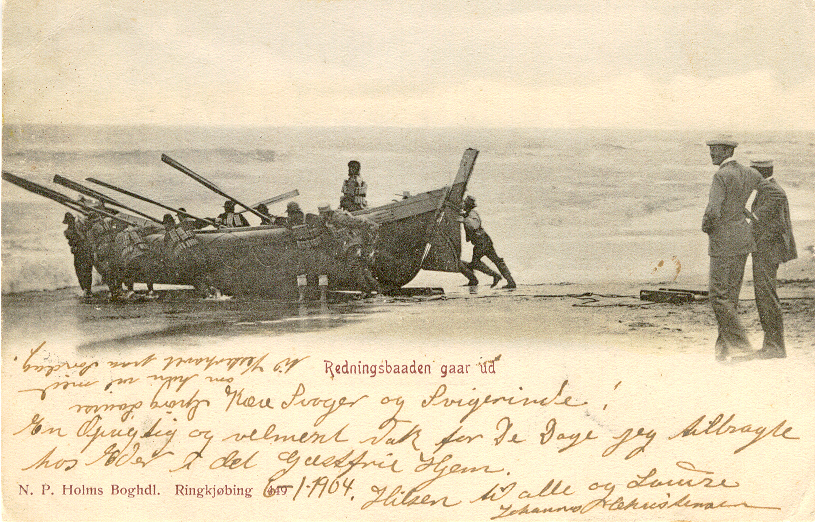 Redningsbaaden gaar ud
Kære Svoger og Svigerinde!
En Oprigtig og velment Tak for De Dage jeg tilbragte
hos Eder i det Gæstfrie Hjem.
N. P. Holms Boghdl. Ringkjøbing
6-1-1904.
Hilsen til alle og Louise
Johannes Christensen